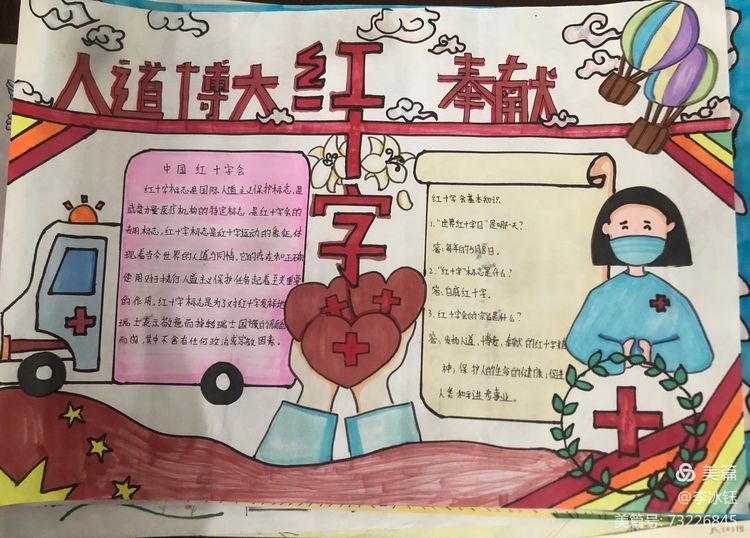 人道博大红十字奉献
中国红十字会
红十字标志是国际人道主义保护标志,是
武装力量医疗机构的特定标志,是红十字会的
专用标志,红十字标志是红十字运动的象征,体
现着当今世界的人道与同情,它的存在和正确
使用对于执行人道主义保护任务起着至关重要
的作用。红十字标志是为了对红十字发祥地
瑞士表示敬意而
而成,其中不含有任何政治或宗教因素。
红十字会基本知识
1.“世界红十字日”是哪一天?
答:每年的5月8日。
2.“红十字”标志是什么?
答:白底红十字。
3.红十字会的宗旨是什么?
答:发扬人道、博爱、奉献的红十字精
神,保护人的生命和健康,促进
人类和平进步事业。
美篇
@李冰钰
美篇号:73226845